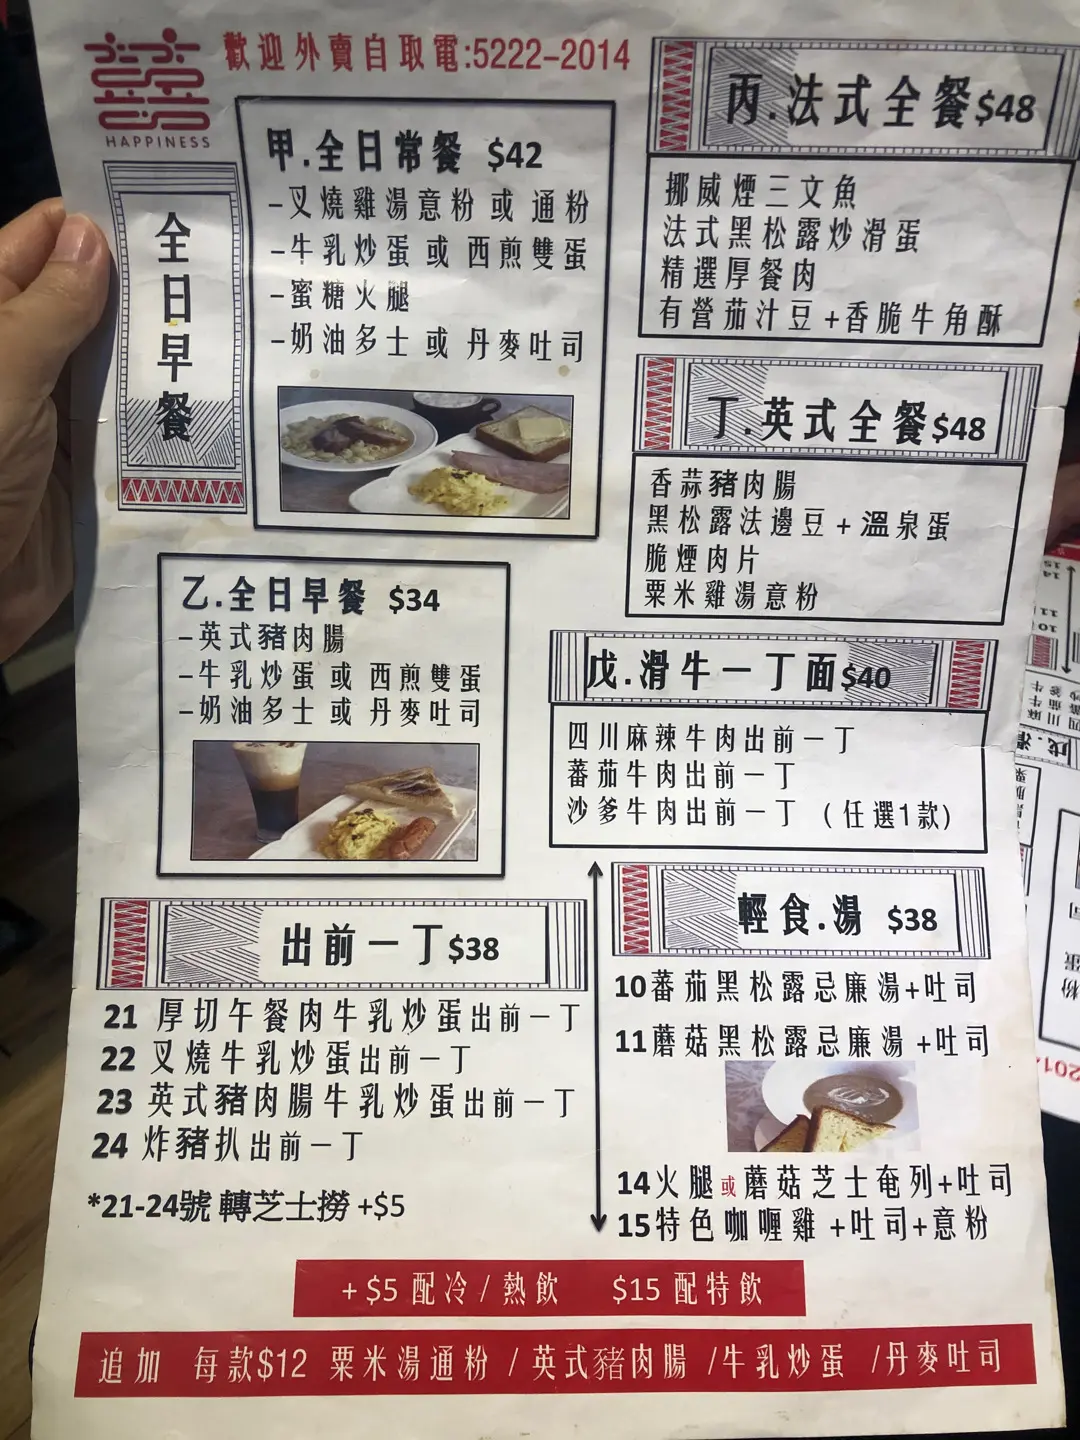 囍
HAPPINESS
歡迎外賣自取電:5222-2014
全日早餐
甲.全日常餐 $42
-叉燒雞湯意粉 或 通粉
-牛乳炒蛋 或 西煎雙蛋
-蜜糖火腿
-奶油多士 或 丹麥吐司
乙.全日早餐 $34
-英式豬肉腸
-牛乳炒蛋 或 西煎雙蛋
-奶油多士 或 丹麥吐司
丙.法式全餐$48
挪威煙三文魚
法式黑松露炒滑蛋
精選厚餐肉
有營茄汁豆+香脆牛角酥
丁.英式全餐$48
香蒜豬肉腸
黑松露法邊豆+溫泉蛋
脆煙肉片
粟米雞湯意粉
戊.滑牛一丁面$40
四川麻辣牛肉出前一丁
蕃茄牛肉出前一丁
沙爹牛肉出前一丁 (任選1款)
出前一丁$38
21 厚切午餐肉牛乳炒蛋出前一丁
22 叉燒牛乳炒蛋出前一丁
23 英式豬肉腸牛乳炒蛋出前一丁
24 炸豬扒出前一丁
*21-24號 轉芝士撈 +$5
輕食.湯 $38
10蕃茄黑松露忌廉湯+吐司
11蘑菇黑松露忌廉湯 +吐司
14火腿或蘑菇芝士奄列+吐司
15特色咖喱雞 +吐司+意粉
+$5配冷/熱飲 $15配特飲
追加 每款$12 粟米湯通粉 /英式豬肉腸 /牛乳炒蛋 /丹麥吐司